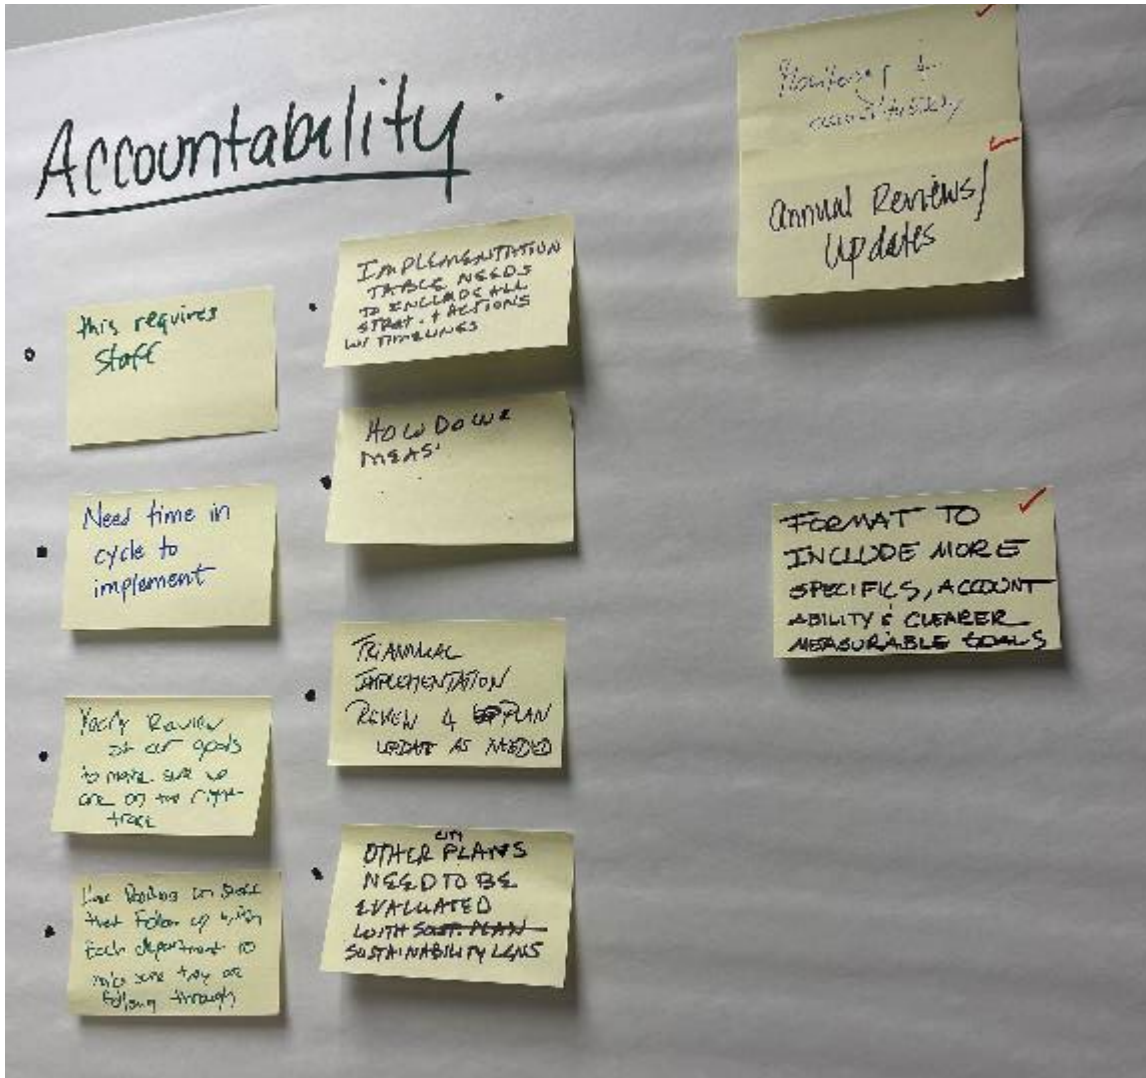 Accountability
this requires
staff
Need time in
cycle to
implement
Yearly Review
of our goals
to make sure we
are on the right
track
that Follow up with
Each department to
make sure they are
following through
IMPLEMENTATION
TABLE NEEDS
TO INCLUDE ALL
STRAT. + ACTIONS
W/ TIMELINES
HOW DO WE
MEAS
TRIANNUAL
IMPLEMENTATION
REVIEW & PLAN
UPDATE AS NEEDED
CITY
OTHER PLANS
NEED TO BE
EVALUATED
WITH SUST. PLAN
SUSTAINABILITY LENS
Monitoring &
accountability
annual Reviews/
Updates
FORMAT TO
INCLUDE MORE
SPECIFICS, ACCOUNT
ABILITY & CLEARER
MEASURABLE GOALS